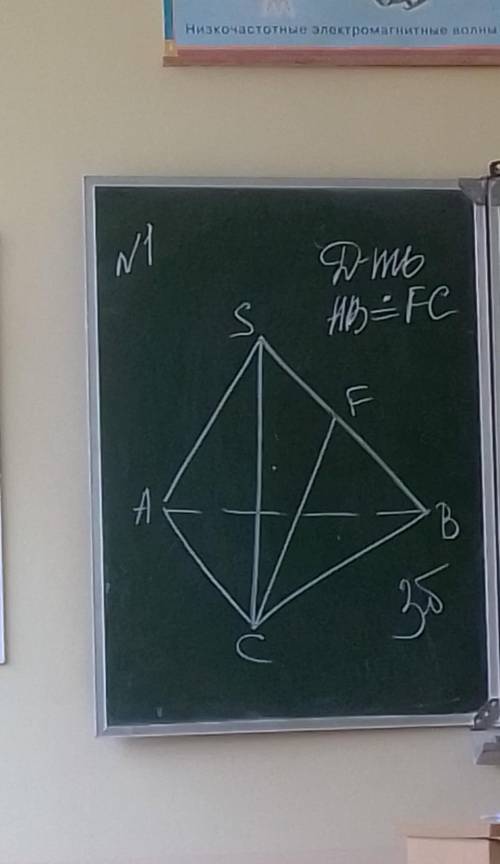 Низкочастотные электромагнитные волны
№1
Д-ть
AB ∸ FC
S
F
A
B
C
3б